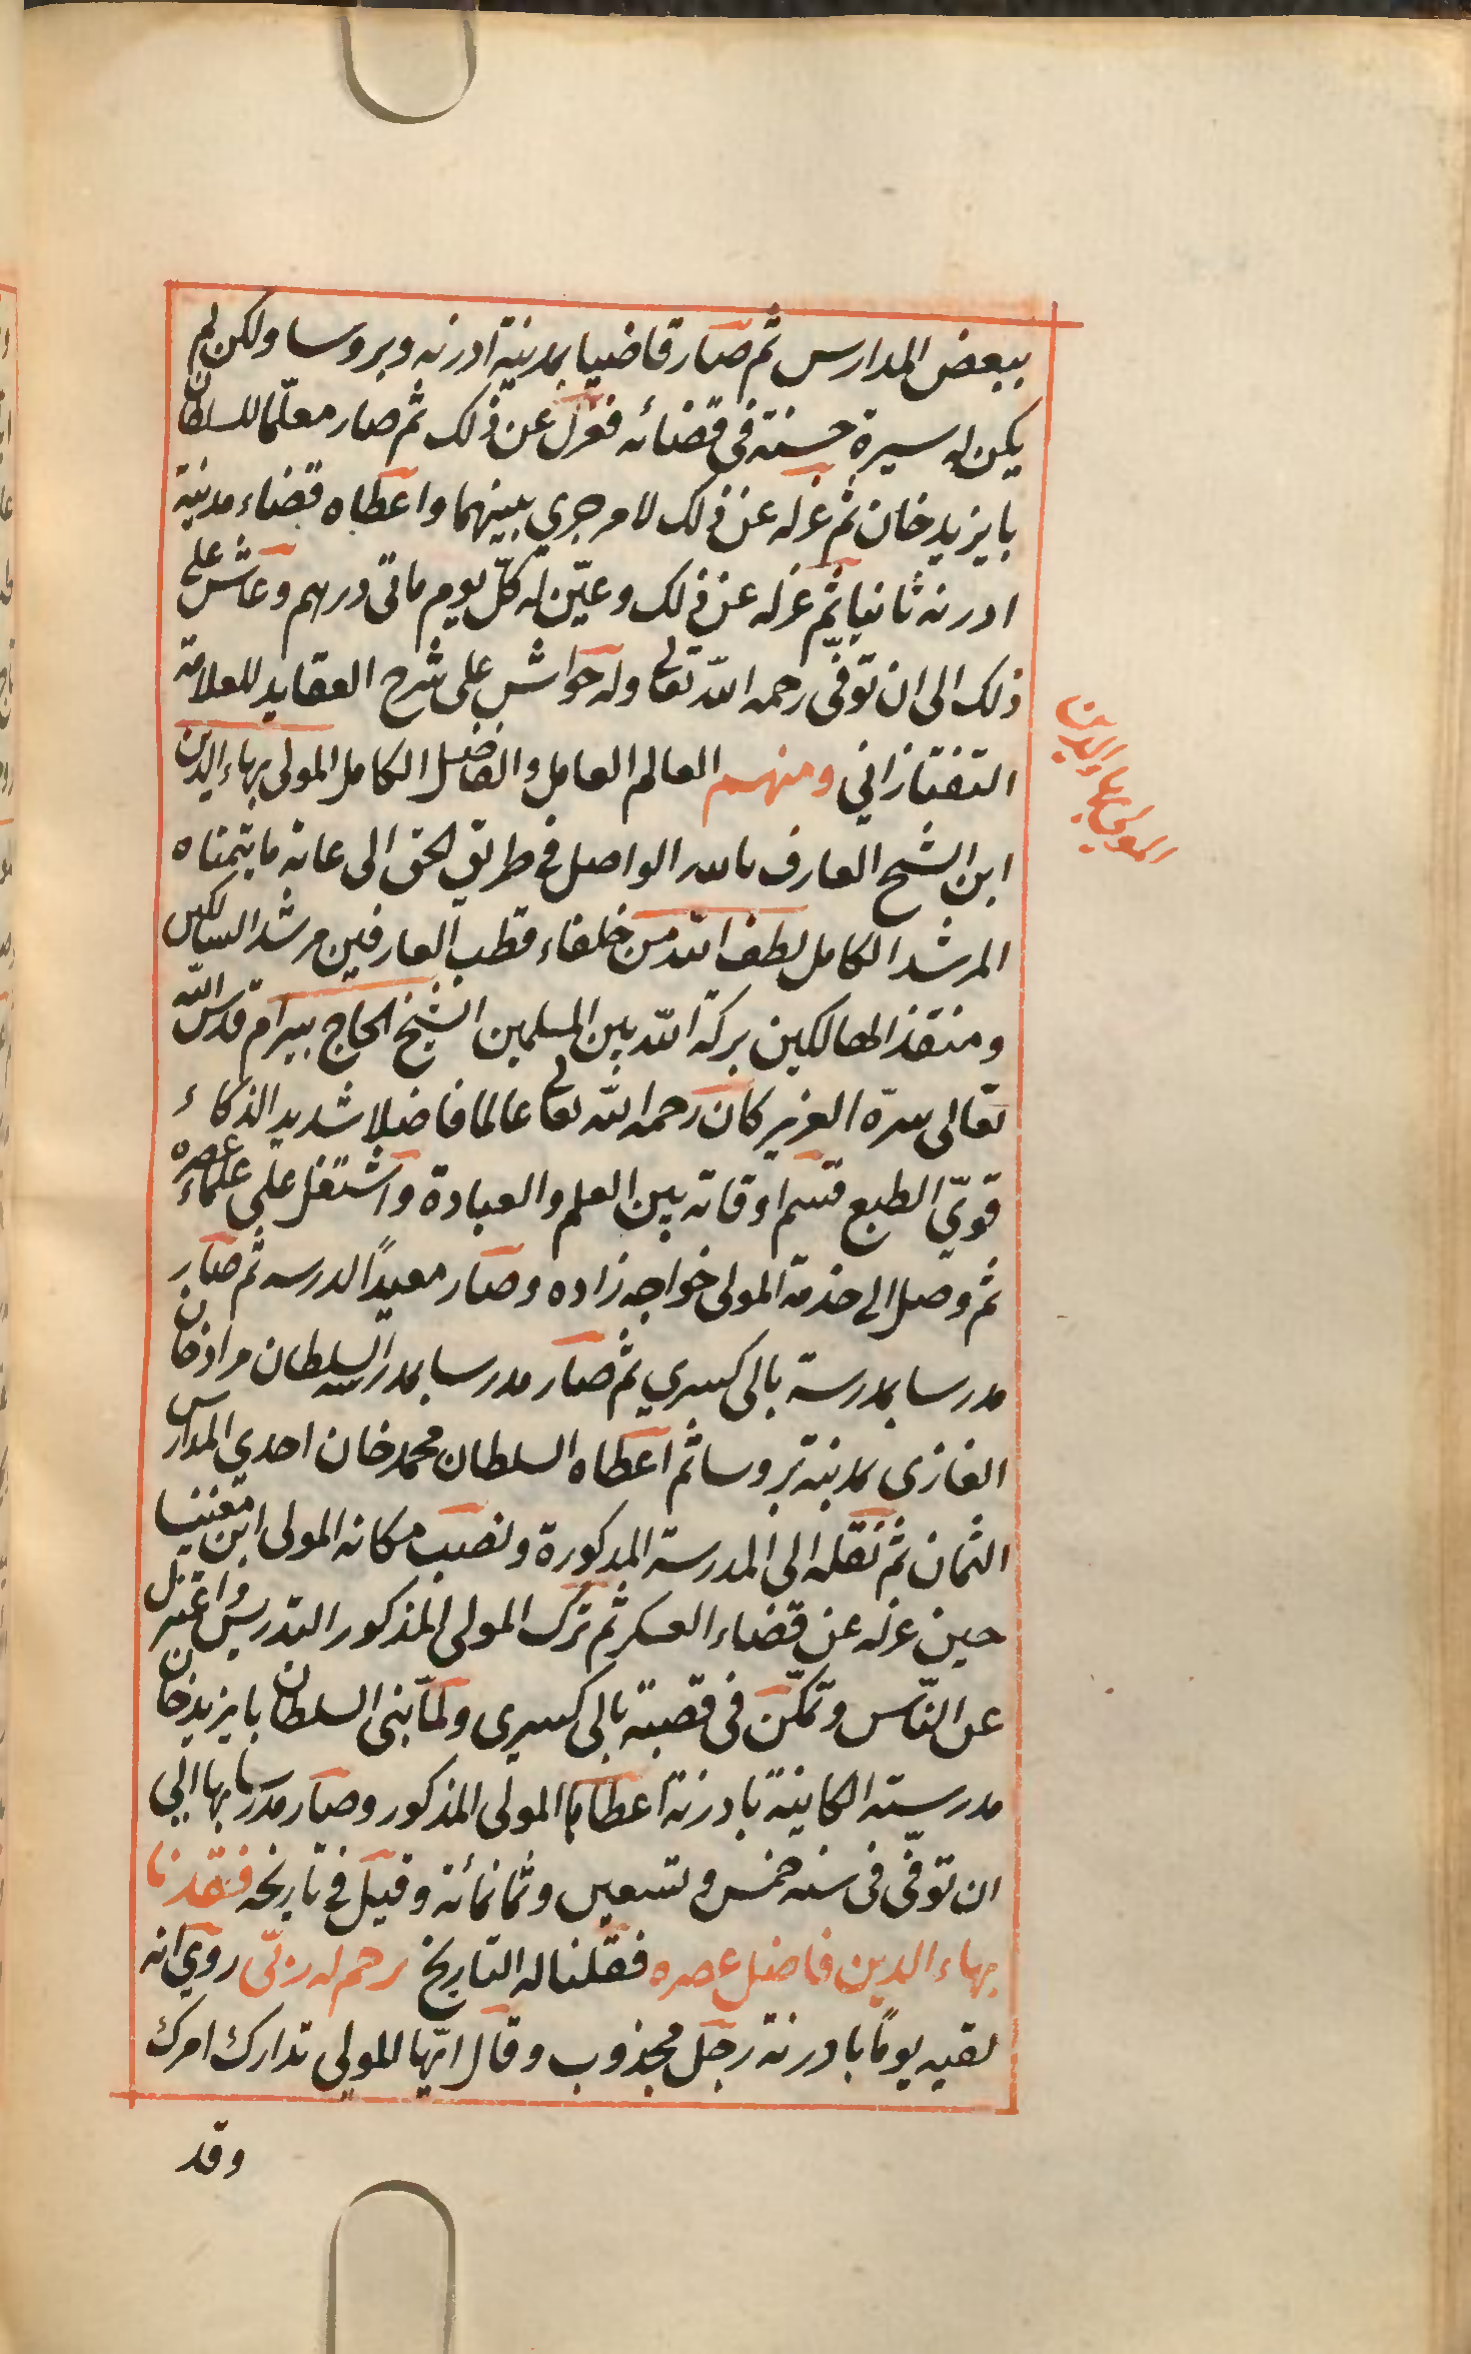 ببعض المدارس ثم صار قاضيا بمدينة ادرنه وبروسا ولكن لم
يكن له سيرة حسنة فى قضائه فعزل عن ذلك ثم صار معلّما للسلطان
بايزيد خان ثم عزله عن ذلك لامر جري بينهما واعطاه قضاء مدينة
ادرنه ثانيا ثم عزله عن ذلك وعيّن له كلّ يوم مائتى درهم وعاش على
ذلك الى ان توفّى رحمه الله تعالى وله حواش على شرح العقايد للعلامة
التفتازاني ومنهم العالم العامل والفاضل الكامل المولى بهاء الدين
المولى بهاء الدين
ابن الشيخ العارف بالله الواصل فى طريق الحق الى غاية ما يتمناه
المرشد الكامل لطف الله من خلفاء قطب العارفين مرشد السالكين
ومنقذ الهالكين بركة الله بين المسلمين الشيخ الحاج بيرام قدس الله
تعالى سرّه العزيز كان رحمه الله تعالى عالما فاضلا شديد الذكاء
قويّ الطبع قسم اوقاته بين العلم والعبادة واشتغل على علماء عصره
ثم وصل الى خذمة المولى خواجه زاده وصار معيدًا لدرسه ثم صار
مدرسا بمدرسة بالى كسري ثم صار مدرسا بمدرسة السلطان مراد خان
الغازى بمدينة بروسا ثم اعطاه السلطان محمد خان احدي المدارس
الثمان ثم نقله الى المدرسة المذكورة ونصب مكانه المولى ابن مغنيسا
حين عزله عن قضاء العسكر ثم ترك المولى المذكور التدريس واعتزل
عن النّاس وتمكّن فى قصبة بالى كسيرى ولمّا بنى السلطان بايزيد خان
مدرسته الكاينة بادرنة اعطاها المولى المذكور وصار مدرسا بها الى
ان توفّى فى سنه خمس و تسعين وثمانمائة وقيل فى تاريخه فقدنا
بهاء الدين فاضل عصره فقلنا له التاريخ يرحم له ربّى روي انه
لقيه يومًا بادرنة رجل مجذوب وقال ايّها المولى تدارك امرك
وقد